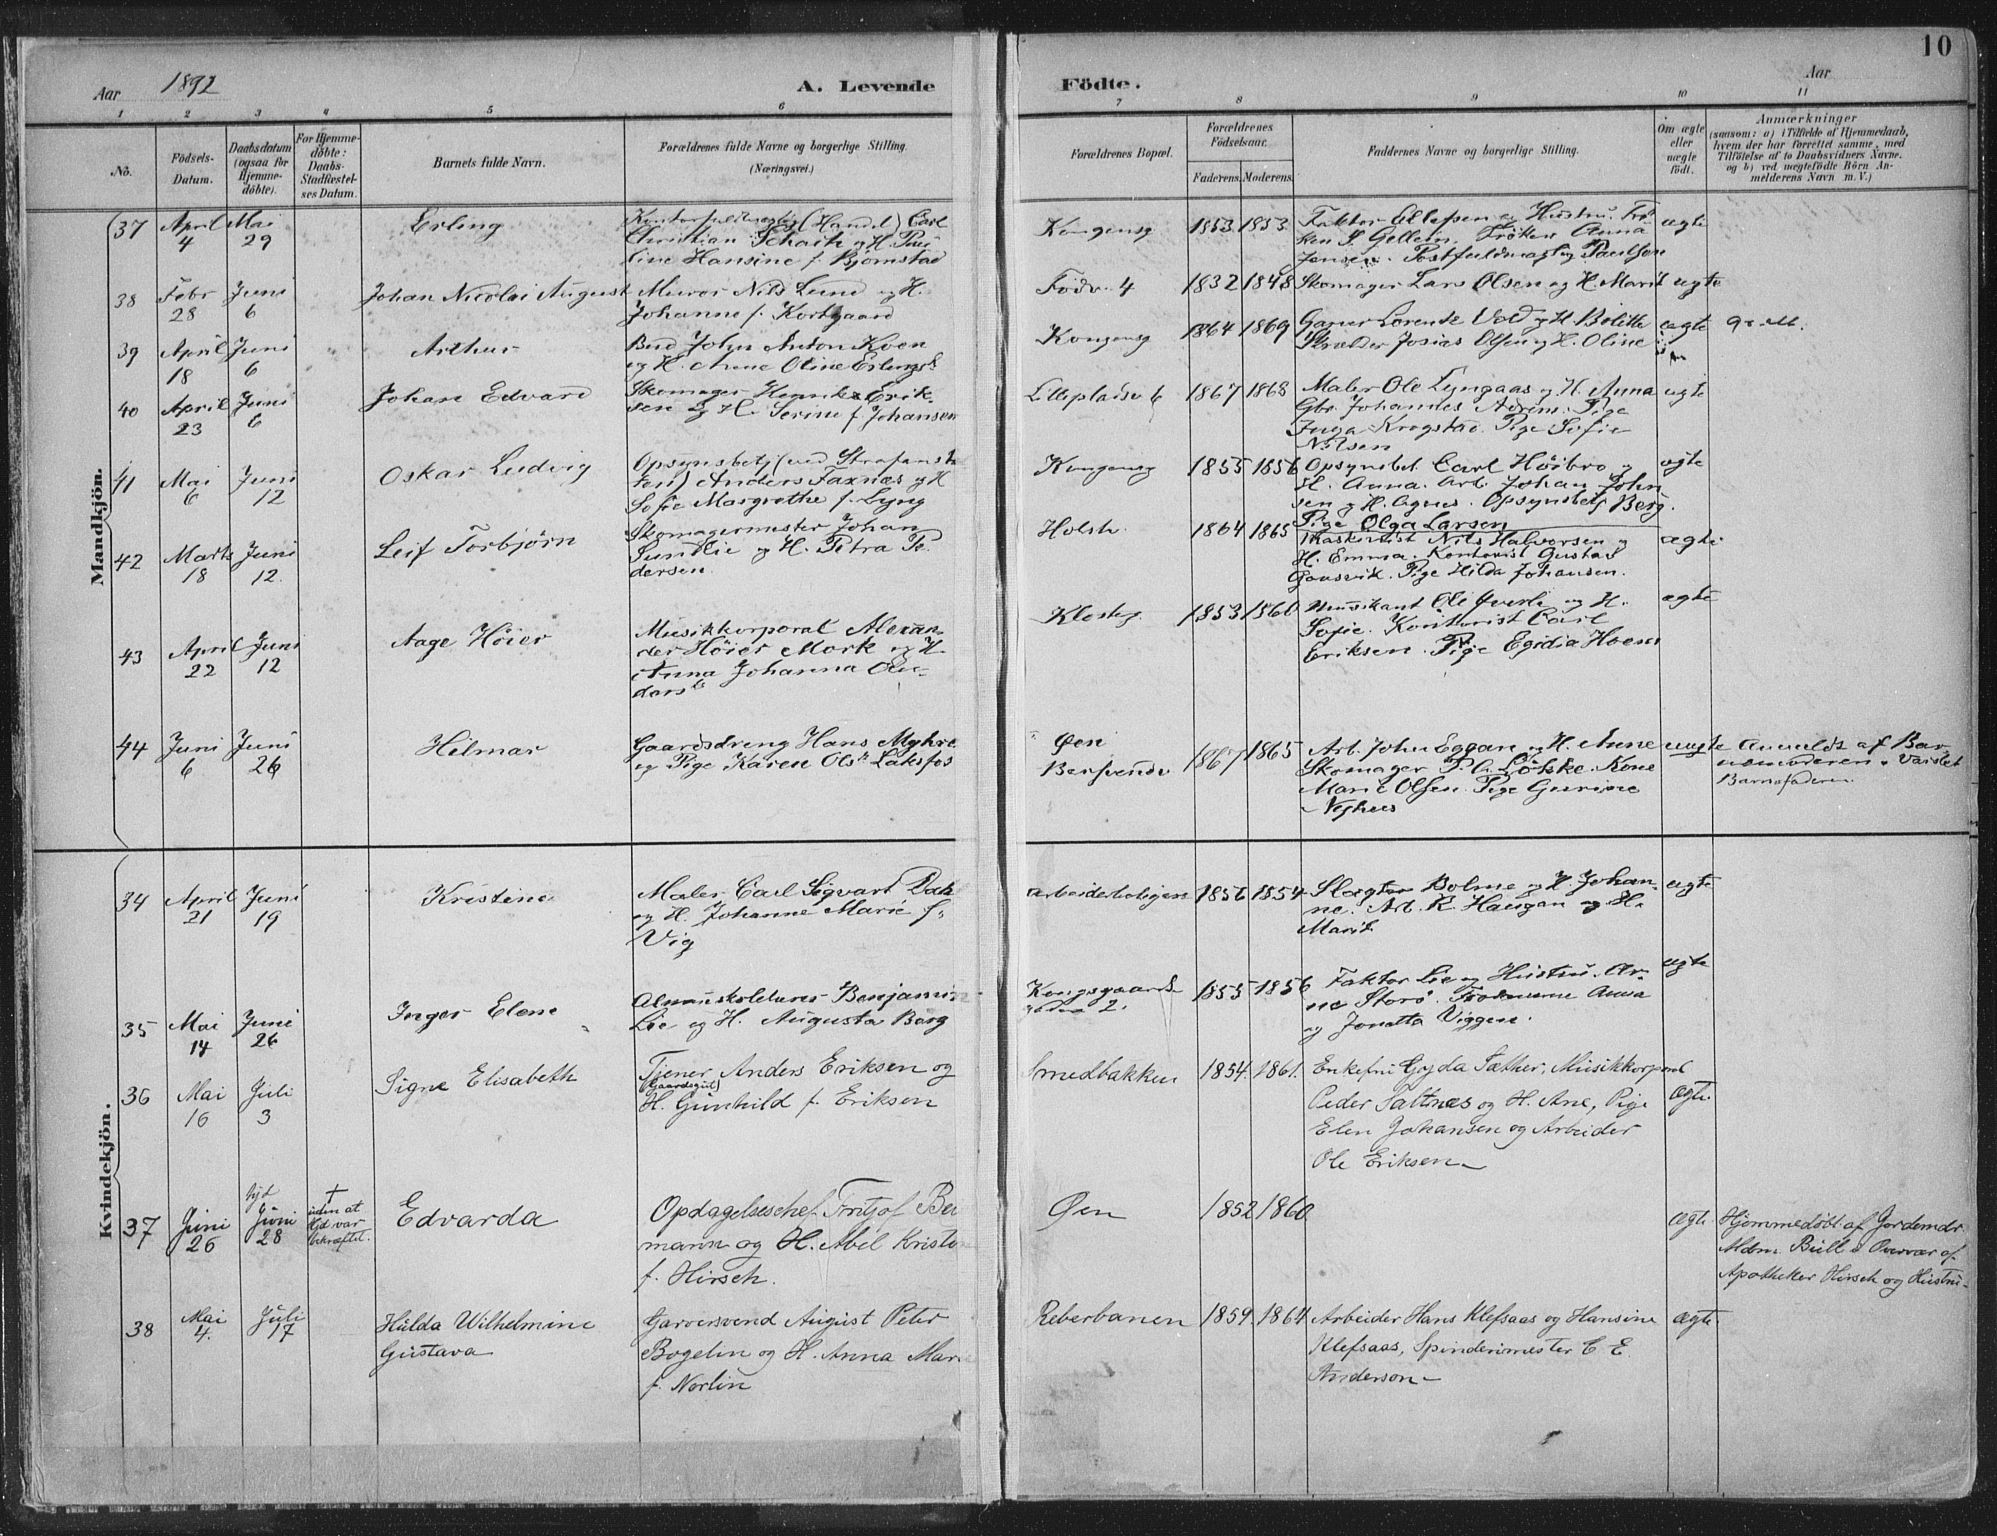 10
Aar 1892
A. Levende Födte.
Aar
1 2 3 4 5 6 7 8 9 10 11
No.
Födsels-Datum.
Daabsdatum (ogsaa for Hjemme-döbte).
For Hjemme-döbte: Daabs-Stadfæstel-ses Datum.
Barnets fulde Navn.
Forældrenes fulde Navne og borgerlige Stilling.
(Næringsvei.)
Forældrenes Bopæl.
Forældrenes Födselsaar.
Faderens. Moderens.
Faddernes Navne og borgerlige Stilling.
Om ægte eller uægte födt.
Anmærkninger
(saasom: a) i Tilfælde af Hjemmedaab,
hvem der har forrettet samme, med
Tilföielse af to Daabsvidners Navne.
og b) ved uægtefödte Börn An-
melderens Navn m. V.)
Mandkjön.
37 April 4 Mai 29 Erling
Christian Schach og H. Pau-
line Hansine f. Bjørnstad
Kongensg 1853 1853
Faktor Ellefsen og Hustru. Frö-
ken S. Gellein. Fröken Anna
Jensen. Postfuldmægtig Paulson
ægte
38 Febr 28 Juni 6 Johan Nicolai August
Murer Nils Lund og H.
Johanne f. Kortgaard
Födv. 4 1832 1848
Skomager Lars Olsen og H. Marit
ægte
39 April 18 Juni 6 Arthur
Bud John Anton Koen
og H. Anne Oline Erlingsd.
Kongensg 1864 1869
Garver Lorents Vold og H. Bolette
Skrædder Josias Olsen og H. Oline
ægte
40 April 23 Juni 6 Johan Edvard
Skomager Henrik Erik-
sen og H. Serine f. Johansen
Lilleplads v 6 1867 1868
Maler Ole Lyngaas og H. Anna
Gbr. Johannes Pige
Inga Krogstad. Pige Sofie
Nilsen
ægte
41 Mai 6 Juni 12 Oskar Ludvig
Opsynsbetj (ved Strafanst-
ten) Anders Faxnæs og H
Sofie Margrethe f. Lyng
Kongensg 1855 1856
Opsynsbet. Carl Höibro og
H. Anna. Arb. Johan John-
sen og H. Agnes. Opsynsbetj Berg.
Pige Olga Larsen
ægte
42 Marts 18 Juni 12. Leif Torbjörn
Skomagermester Johan
Sundlie og H. Petra Pe-
dersen.
Holstv. 1864 1865
Maskinist Nils Halvorsen og
H. Emma. Kontorist Gustav
Gaasvik. Pige Hilda Johansen.
ægte
43 April 22 Juni 12 Aage Höier
Musikkorporal Alexan-
der Höier Mork og H.
Anna Johanna
Klosterg. 1853 1860
Musikant Ole Qverli og H.
Sofie. Kontorist Carl
Eriksen. Pige Egidia Hoem
ægte
44 Juni 6 Juni 26 Hilmar
Gaardsdreng Hans Myhre
og Pige Karen Olsdr Laksfos
Øen
1867 1865
Arb. John Eggan og H. Anne
Skomager P. A. Lötske. Kone
Marie Olsen. Pige Gurine
Nyhus
uægte
Anmeldt af Bar-
nemoderen. Varslet
Barnefaderen.
Kvindekjön.
34 April 21 Juni 19 Kristine
Maler Carl Sigvart Dahl
og H. Johanne Marie f.
Vig
Arbeiderboligen 1856 1854
Slagter Bolme og H. Johan-
ne. Arb. K. Haugan og H.
Marit
ægte
35 Mai 14 Juni 26 Inger Elene
Almueskolelærer Benjamin
Lie og H. Augusta Berg
Kongsgaards-
gaden 2. 1855 1856
Faktor Lie og Hustru. Ar-
ne Storö. Frökenerne Anna
og Jonetta Viggen.
ægte
36 Mai 16 Juli 3 Signe Elisabeth
Tjener Anders Eriksen og
(Gaardsgut)
H. Gunhild f. Eriksen
Smedbakken 1854. 1861.
Enkefru Gyda Sæther, Musikkorporal
Peder Saltnæs og H. Ane, Pige
Elen Johansen og Arbeider
Ole Eriksen.
ægte
37 Juni 26 Juni 28 + uden at
Hjd var
bekræftet.
Edvarda
Opdagelseschef Fritjof Bei-
mann og H. Abel Kristine
f. Hirsch.
Øen 1852 1860
ægte
Hjemmedöbt af Jordemdr
Mdm. Büll i Overvær af
Apotheker Hirsch og Hustru.
38 Mai 4. Juli 17 Hulda Wilhelmine
Gustava
Garversvend August Peter
Bogelin og H. Anna Marie
f. Norlin
Reberbanen 1859 1864
Arbeider Hans Klefsaas og Hansine
Klefsaas, Spinderimester C E
Anderson
ægte